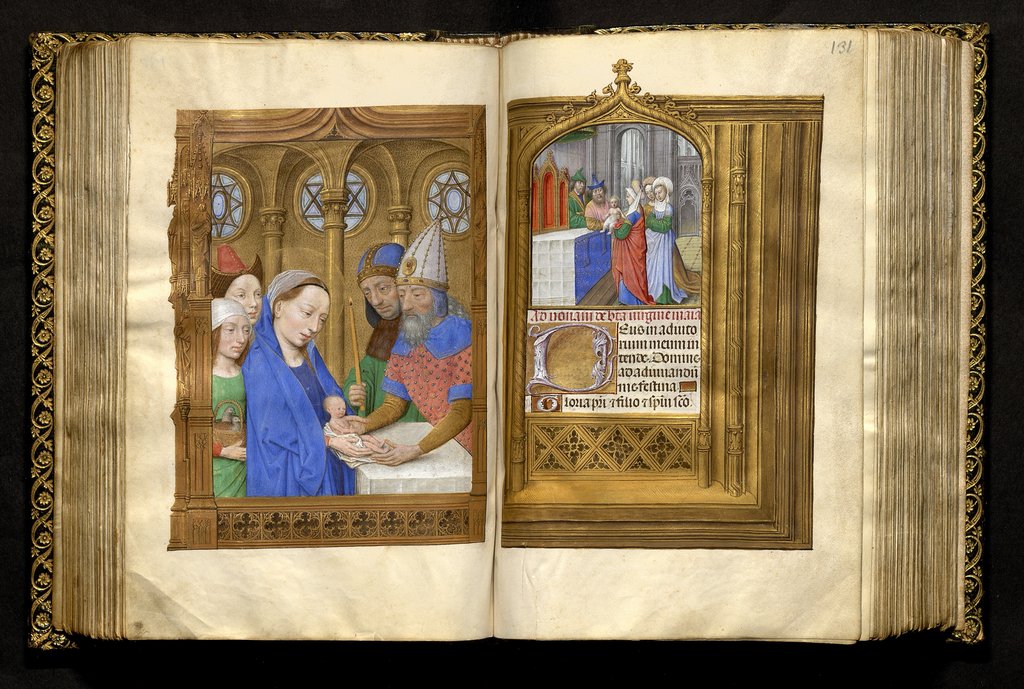 131
Ad nonam de bta virgine maria
Deus in adiuto
rium meum in
tende. Domine
ad adiuuandū
me festina
Gloria pri ⁊ filio ⁊ spiri scō.